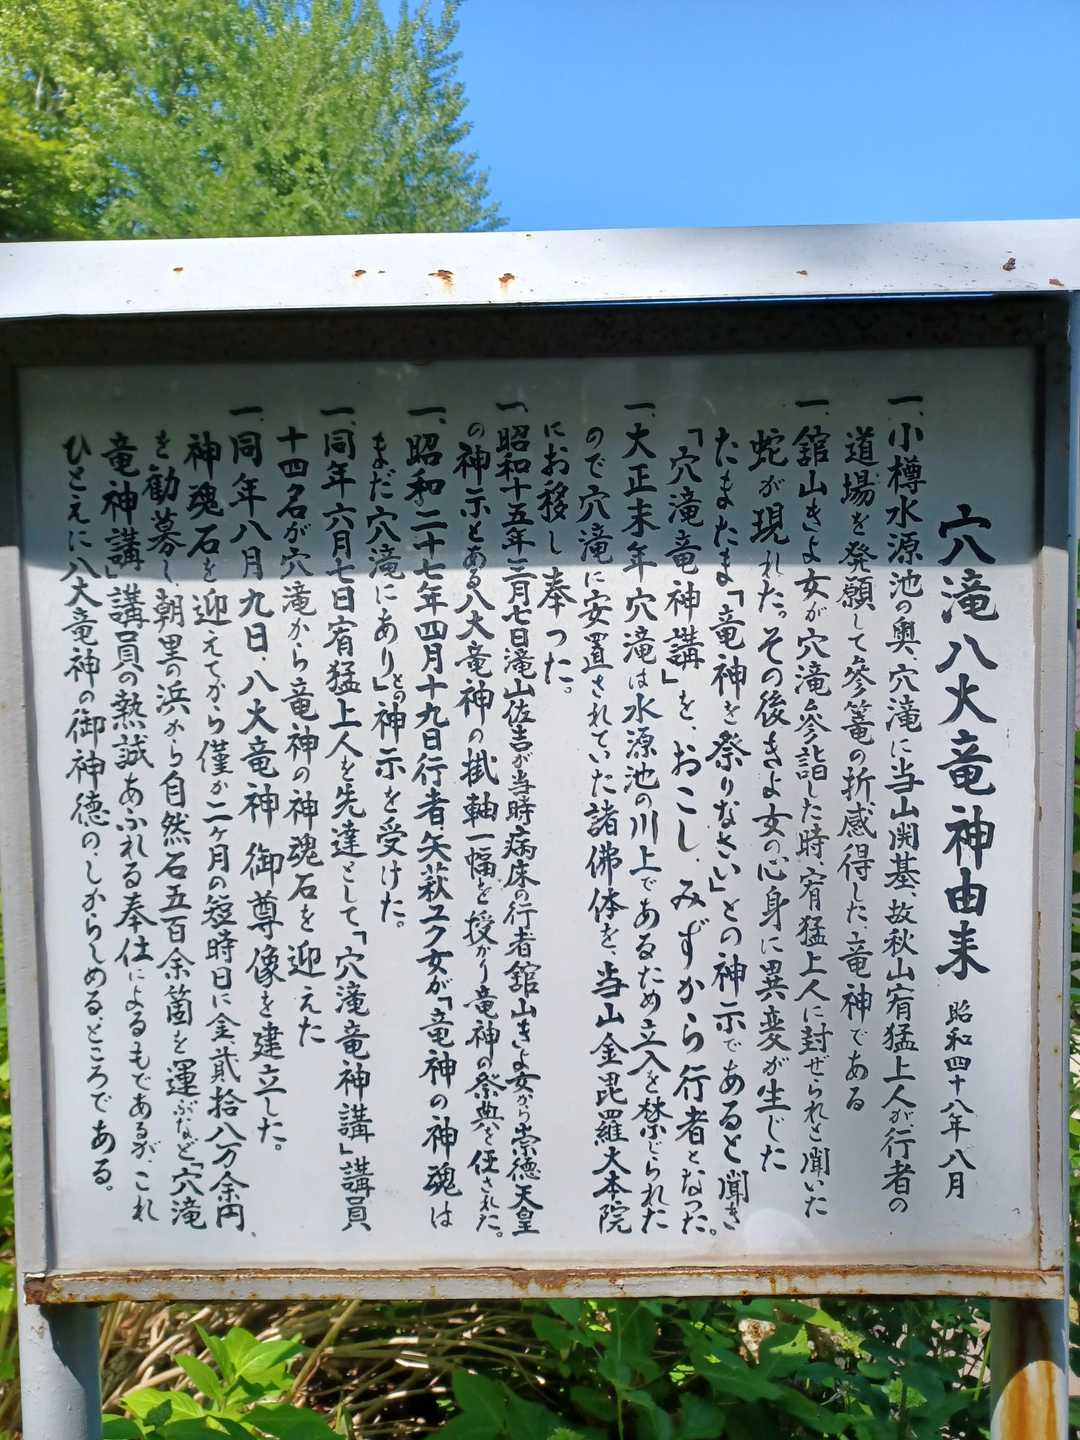 穴滝八大竜神由来 昭和四十八年八月
一、小樽水源池の奥、穴滝に当山開基、故秋山宥猛上人が、行者の
道場を発願して参篭の折感得した、竜神である
一、舘山きよ女が穴滝参詣した時、宥猛上人に封ぜられと聞いた
蛇が現れた。その後きよ女の心身に異変が生じた
たまたま「竜神を祭りなさい」との神示であると聞き
「穴滝竜神講」を、おこし、みずから行者となった。
一、大正末年穴滝は水源池の川上であるため立入を禁じられた
ので穴滝に安置されていた諸佛体を、当山金毘羅大本院
にお移し奉つた。
一、昭和十五年三月七日滝山佐吉が当時病床の行者舘山きよ女から崇徳天皇
の神示とある八大竜神の掛軸一幅を授かり竜神の祭典を任された。
一、昭和二十七年四月十九日行者矢萩ユク女が「竜神の神魂は
まだ穴滝にあり」との神示を受けた。
一、同年六月七日宥猛上人を先達として、「穴滝竜神講」講員
十四名が穴滝から竜神の神魂石を迎えた
一、同年八月九日、八大竜神御尊像を建立した。
神魂石を迎えてから僅か二ヶ月の短時日に金貳拾八万余円、
を勧募し、朝里の浜から自然石五百余箇を運ぶなど「穴滝
竜神講」講員の熱誠あふれる奉仕によるもであるが、これ
ひとえに八大竜神の御神徳のしからしめる、ところである。